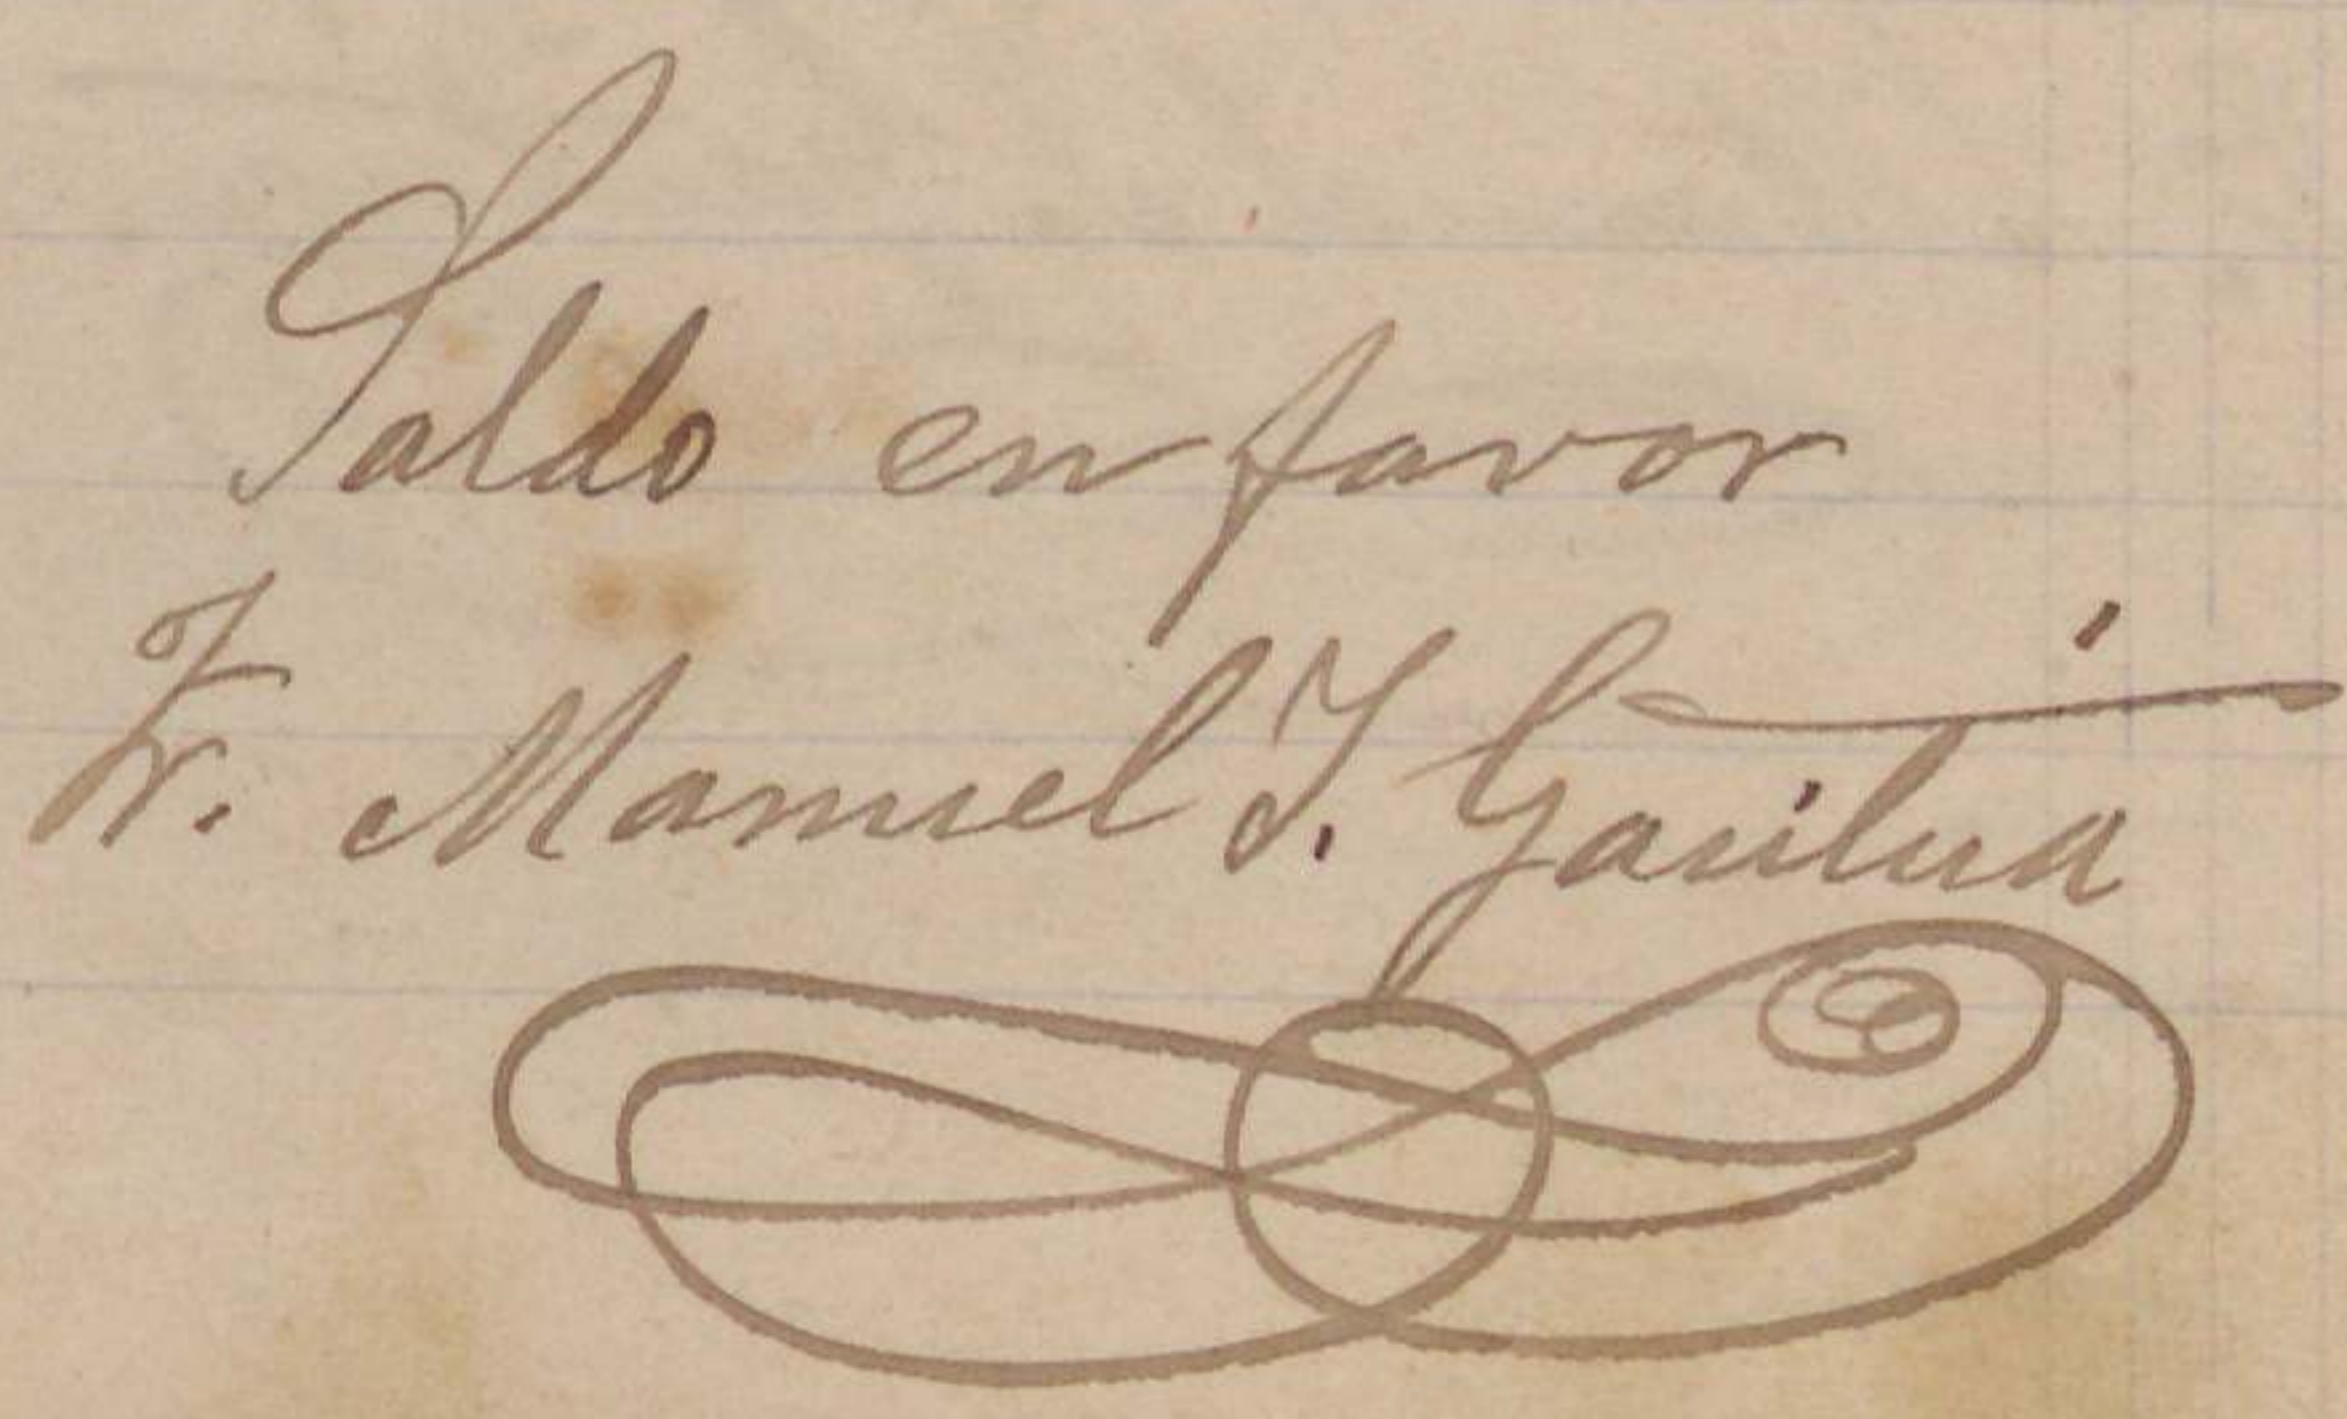 Saldo en favor
Fr. Manuel I. Gaitua